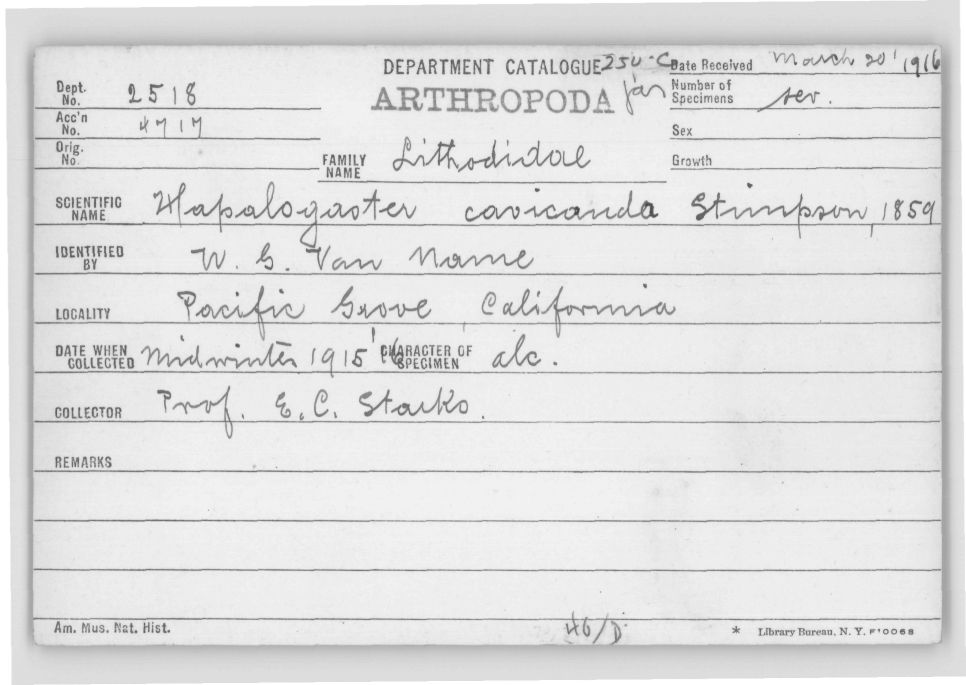 DEPARTMENT CATALOGUE 250-C Date Received March 20' 1916
Dept. No. 2518 ARTHROPODA jar Number of Specimens sev.
Acc'n No. 4717 Sex
Orig. No. FAMILY NAME Lithodidae Growth
SCIENTIFIC NAME Hapalogaster cavicauda Stimpson, 1859
IDENTIFIED BY W. G. Van Name
LOCALITY Pacific Grove, California
DATE WHEN COLLECTED Midwinter 1915'16 CHARACTER OF SPECIMEN alc.
COLLECTOR Prof. E. C. Starks.
REMARKS
Am. Mus. Nat. Hist. 46/D * Library Bureau, N. Y. F'0068